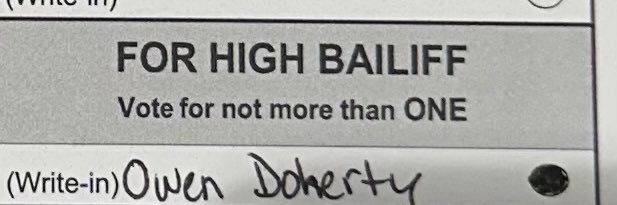 FOR HIGH BAILIFF
Vote for not more than ONE
(Write-in) Owen Doherty